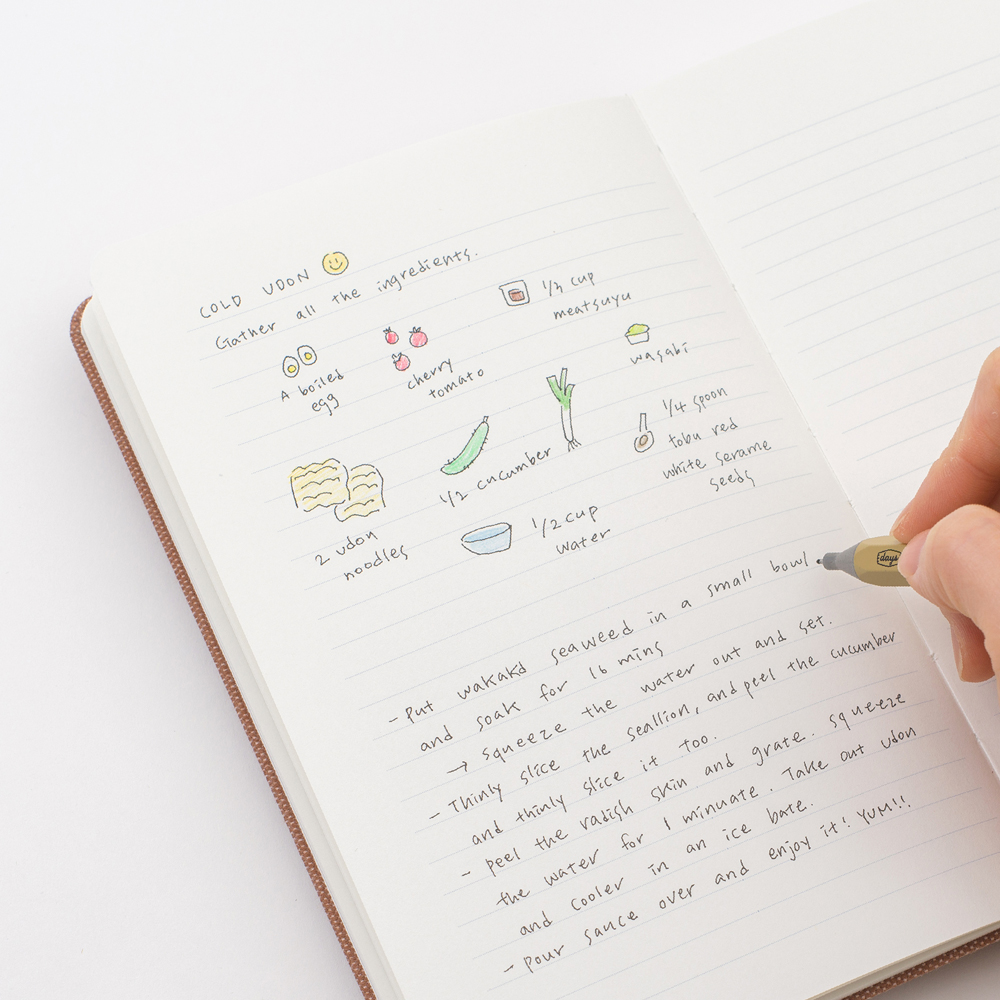 COLD UDON
Gather all the ingredients.
A boiled
egg
cherry
tomato
1/3 cup
meatsuyu
wasabi
2 udon
noodles
1/2 cucumber
1/4 spoon
tobu red
white serame
seeds
1/2 cup
water
- Put wakakd seaweed in a small bowl.
and soak for 16 mins
→ squeeze the water out and set.
- Thinly slice the seallion, and peel the cucumber
and thinly slice it too.
- peel the radish skin and grate. squeeze
the water for 1 minuate. Take out udon
and cooler in an ice bate.
- pour sauce over and enjoy it! YUM!!
days